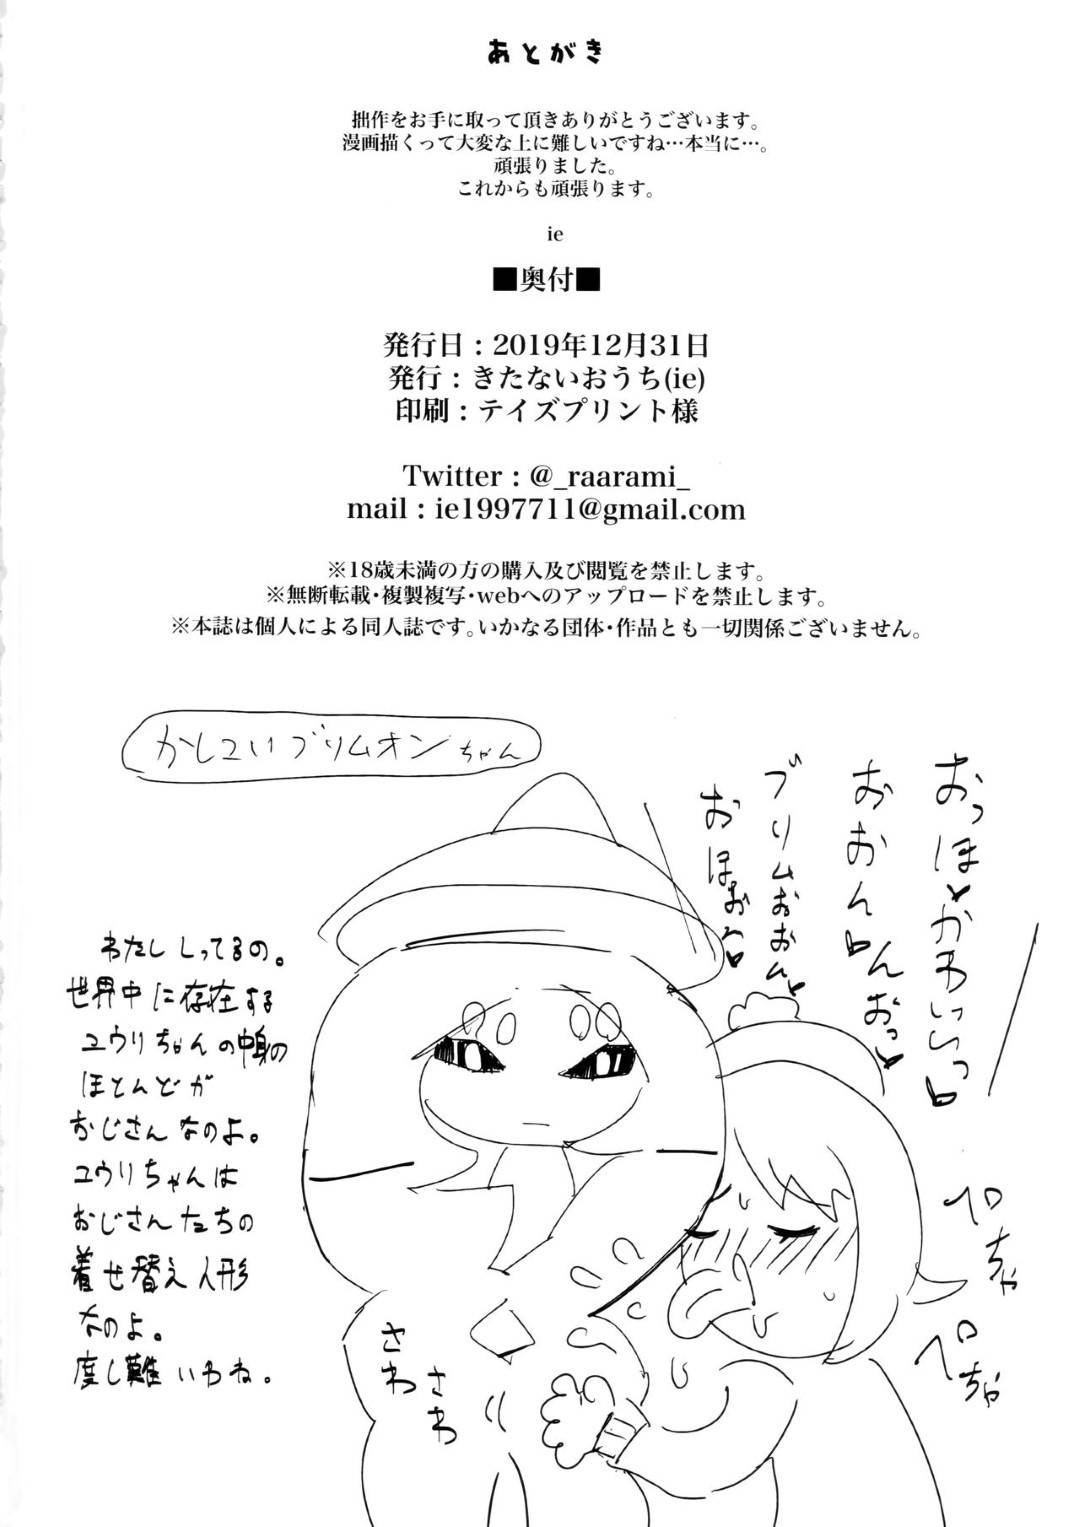 あとがき
拙作をお手に取って頂きありがとうございます。
漫画描くって大変な上に難しいですね…本当に…。
頑張りました。
これからも頑張ります。
ie
■奥付■
発行日：2019年12月31日
発行：きたないおうち(ie)
印刷：テイズプリント様
Twitter : @_raarami_
mail : ie1997711@gmail.com
※18歳未満の方の購入及び閲覧を禁止します。
※無断転載・複製複写・webへのアップロードを禁止します。
※本誌は個人による同人誌です。いかなる団体・作品とも一切関係ございません。
かしこいブリムオンちゃん
おっほ♥かわいいっ♥
おおん♥んおっ♥
ブリムおおん♥
おほおぉ♥
わたししってるの。
世界中に存在する
ユウリちゃんの中身の
ほとんどが
おじさんなのよ。
ユウリちゃんは
おじさんたちの
着せ替え人形
なのよ。
度し難いわね。
ペロちゃ
ペロちゃ
さわ
さわ